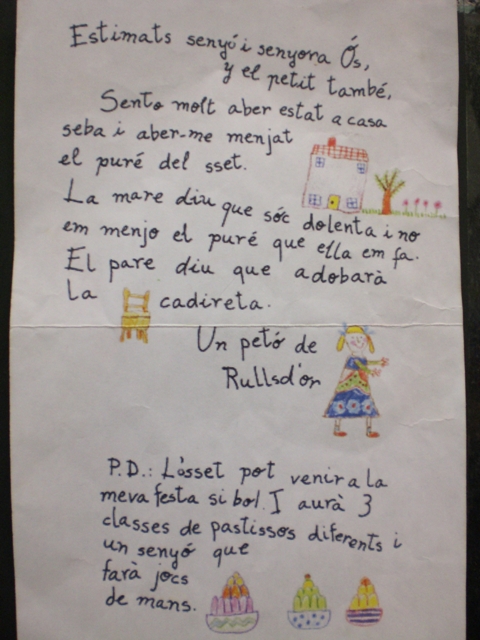 Estimats senyó i senyora Ós,
y el petit també,
Sento molt aber estat a casa
seba i aber-me menjat
el puré del sset.
La mare diu que sóc dolenta i no
em menjo el puré que ella em fa.
El pare diu que adobarà
la cadireta.
Un petó de
Rullsd'or
P.D.: L'òsset pot venir a la
meva festa si bol. I aurà 3
classes de pastissos diferents i
un senyó que
farà jocs
de mans.